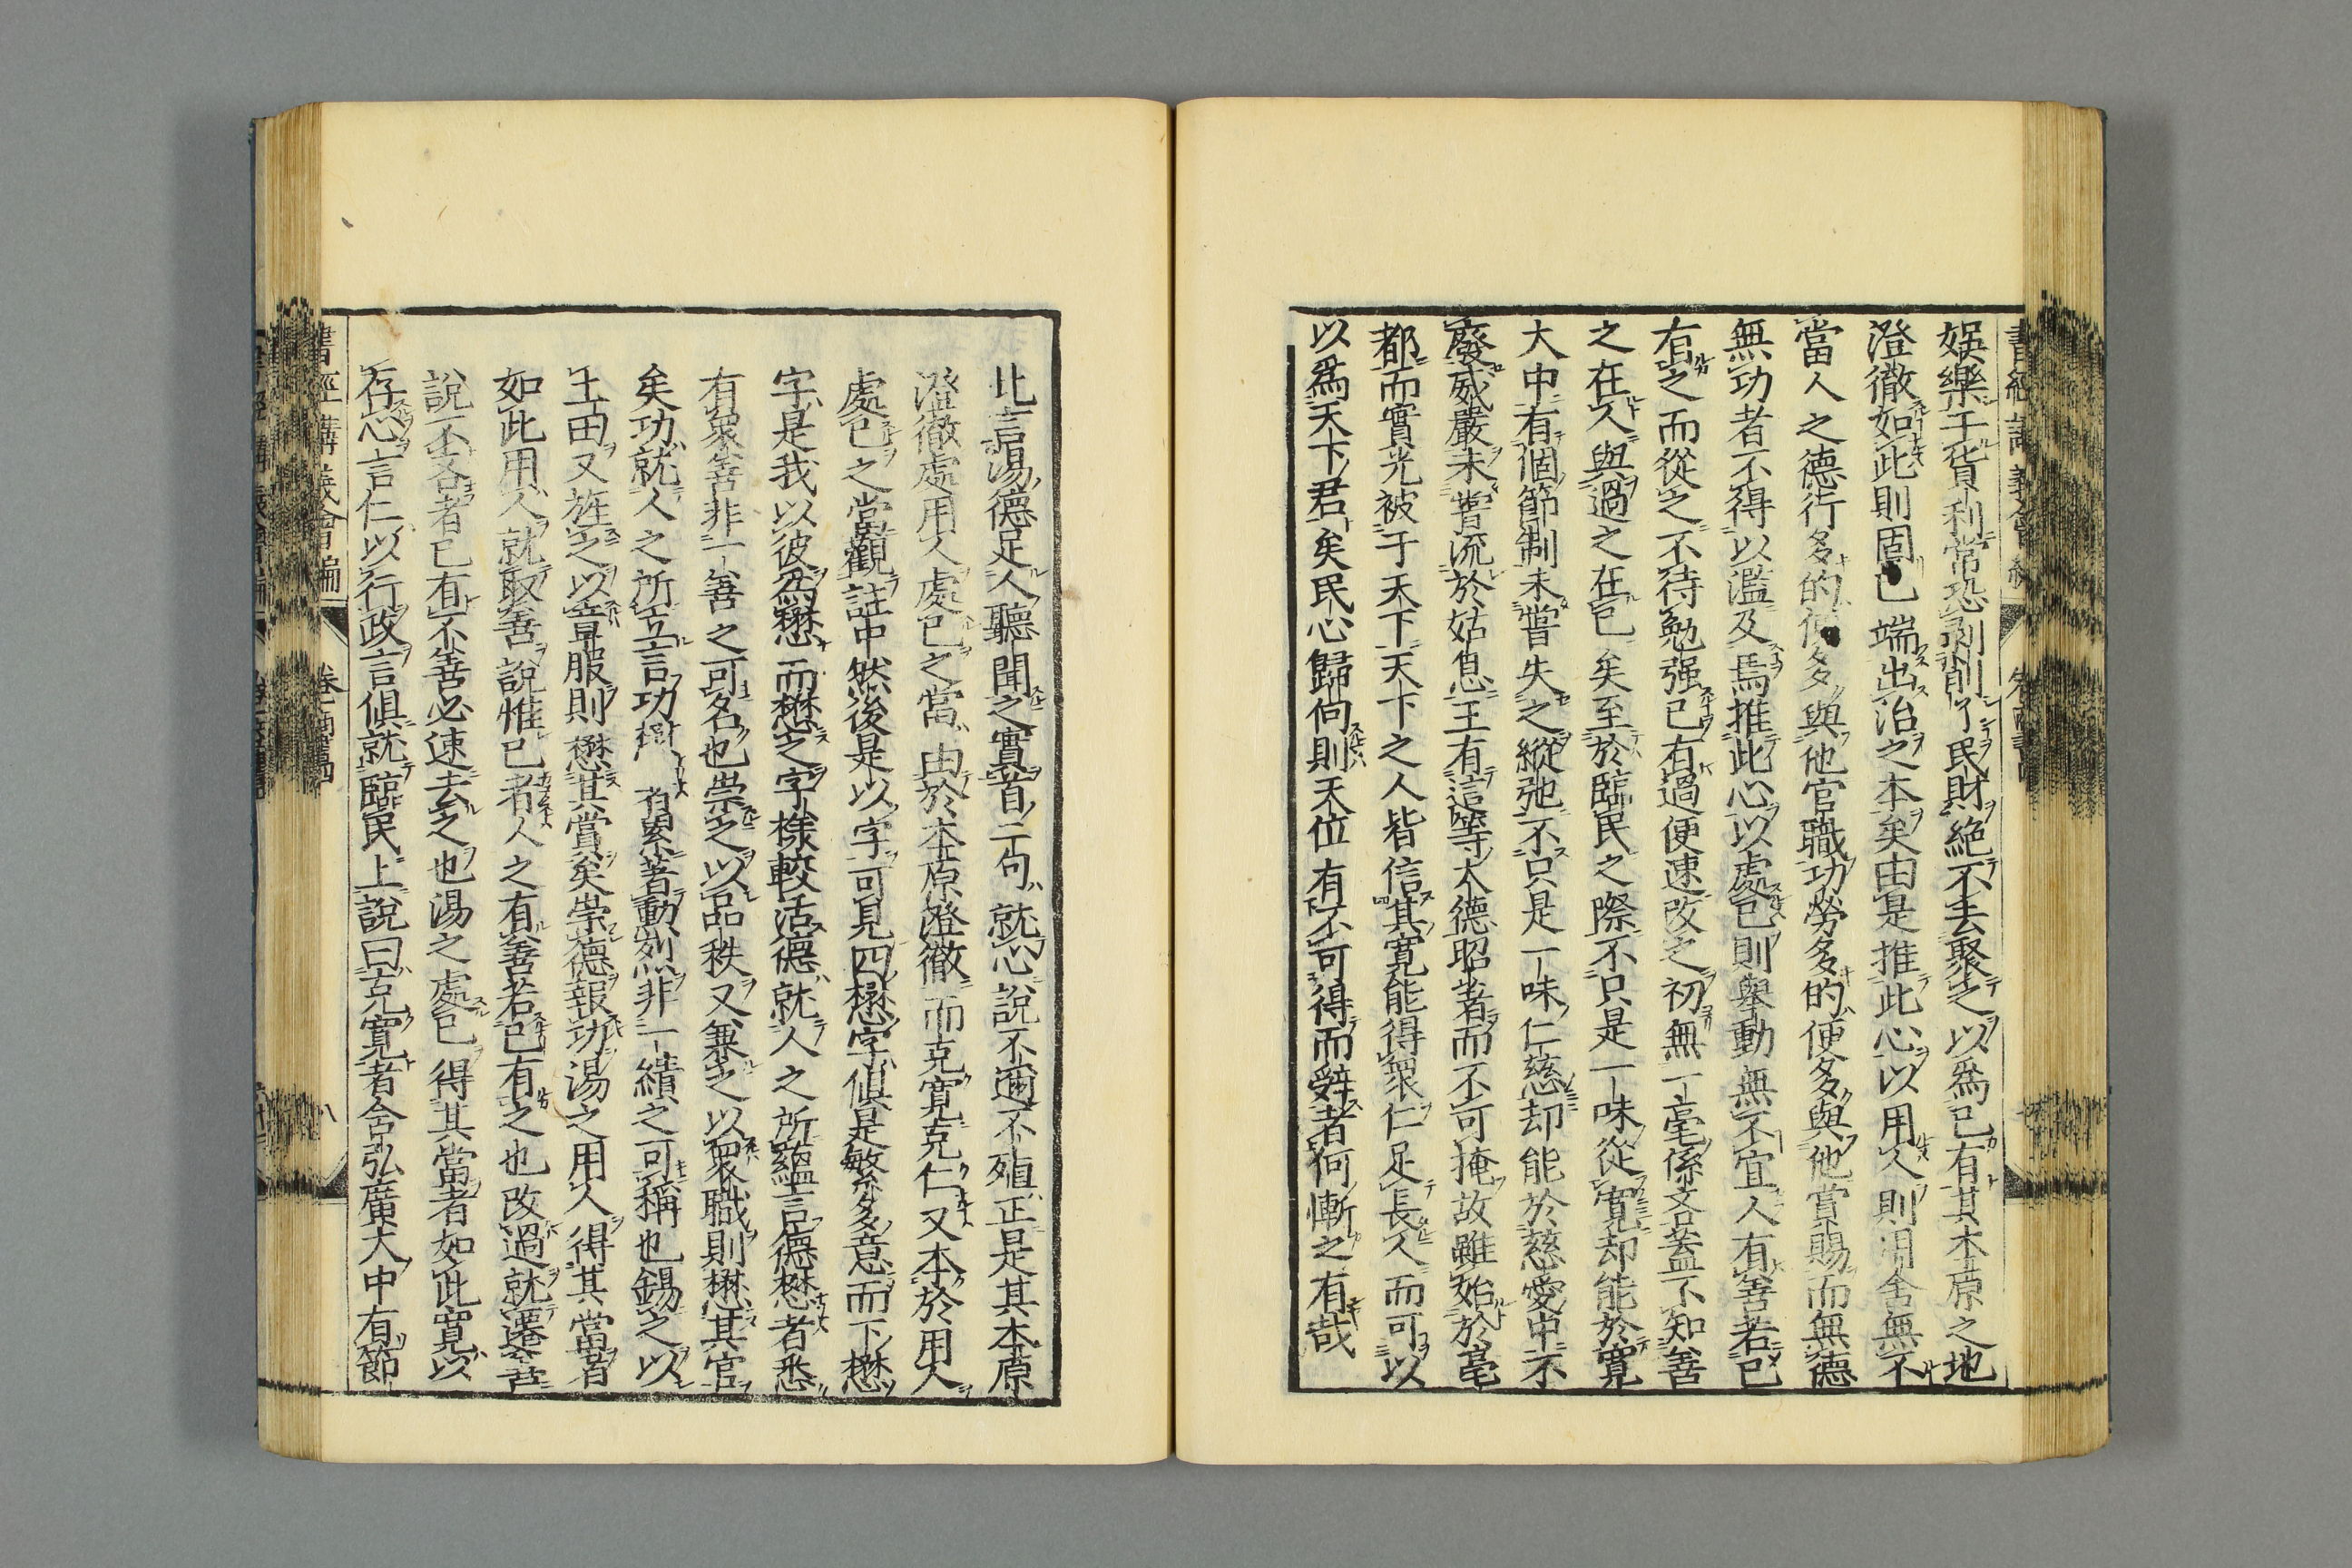 娯樂于貨利常恐剥削了民財絶不去聚之以為己有其本原之地
澄徹如此則固已端出治之本矣由是推此心以用人則用舍無不
當人之德行多的便多與他官職功勞多的便多與他賞賜而無德
無功者不得以濫及焉推此心以處己則舉動無不宜人有善若己
有之而從之不待勉强己有過便速改之初無一毫係吝蓋不知善
之在人與過之在己矣至於臨民之際不只是一味從寛却能於寛
大中有個節制未嘗失之縱弛不只是一味仁慈却能於慈愛中不
廢威嚴未嘗流於姑息王有這等大德昭著而不可掩故雖始於亳
都而實光被于天下天下之人皆信其寛能得衆仁足長人而可以
以為天下君矣民心歸向則天位有不可得而辭者何慚之有哉
此言湯德足人聽聞之實首二句就心說不邇不殖正是其本原
澄徹處用人處己之當由於本原澄徹而克寛克仁又本於用人
處己之當觀註中然後是以字可見四懋字俱是繁多意而下懋
字是我以彼為懋而懋之字様較活德就人之所蘊言德懋者悉
有衆善非一善之可名也崇之以品秩又兼之以衆職則懋其官
矣功就人之所立言功懋者累著動烈非一績之可稱也錫之以
土田又旌之以章服則懋其賞矣崇德報功湯之用人得其當者
如此用人就取善說惟己者人之有善若己有之也改過就遷善
說不吝者已有不善必速去之也湯之處己得其當者如此寛以
存心言仁以行政言俱就臨民上說曰克寛者含弘廣大中有節
書經講義會編 卷 商書